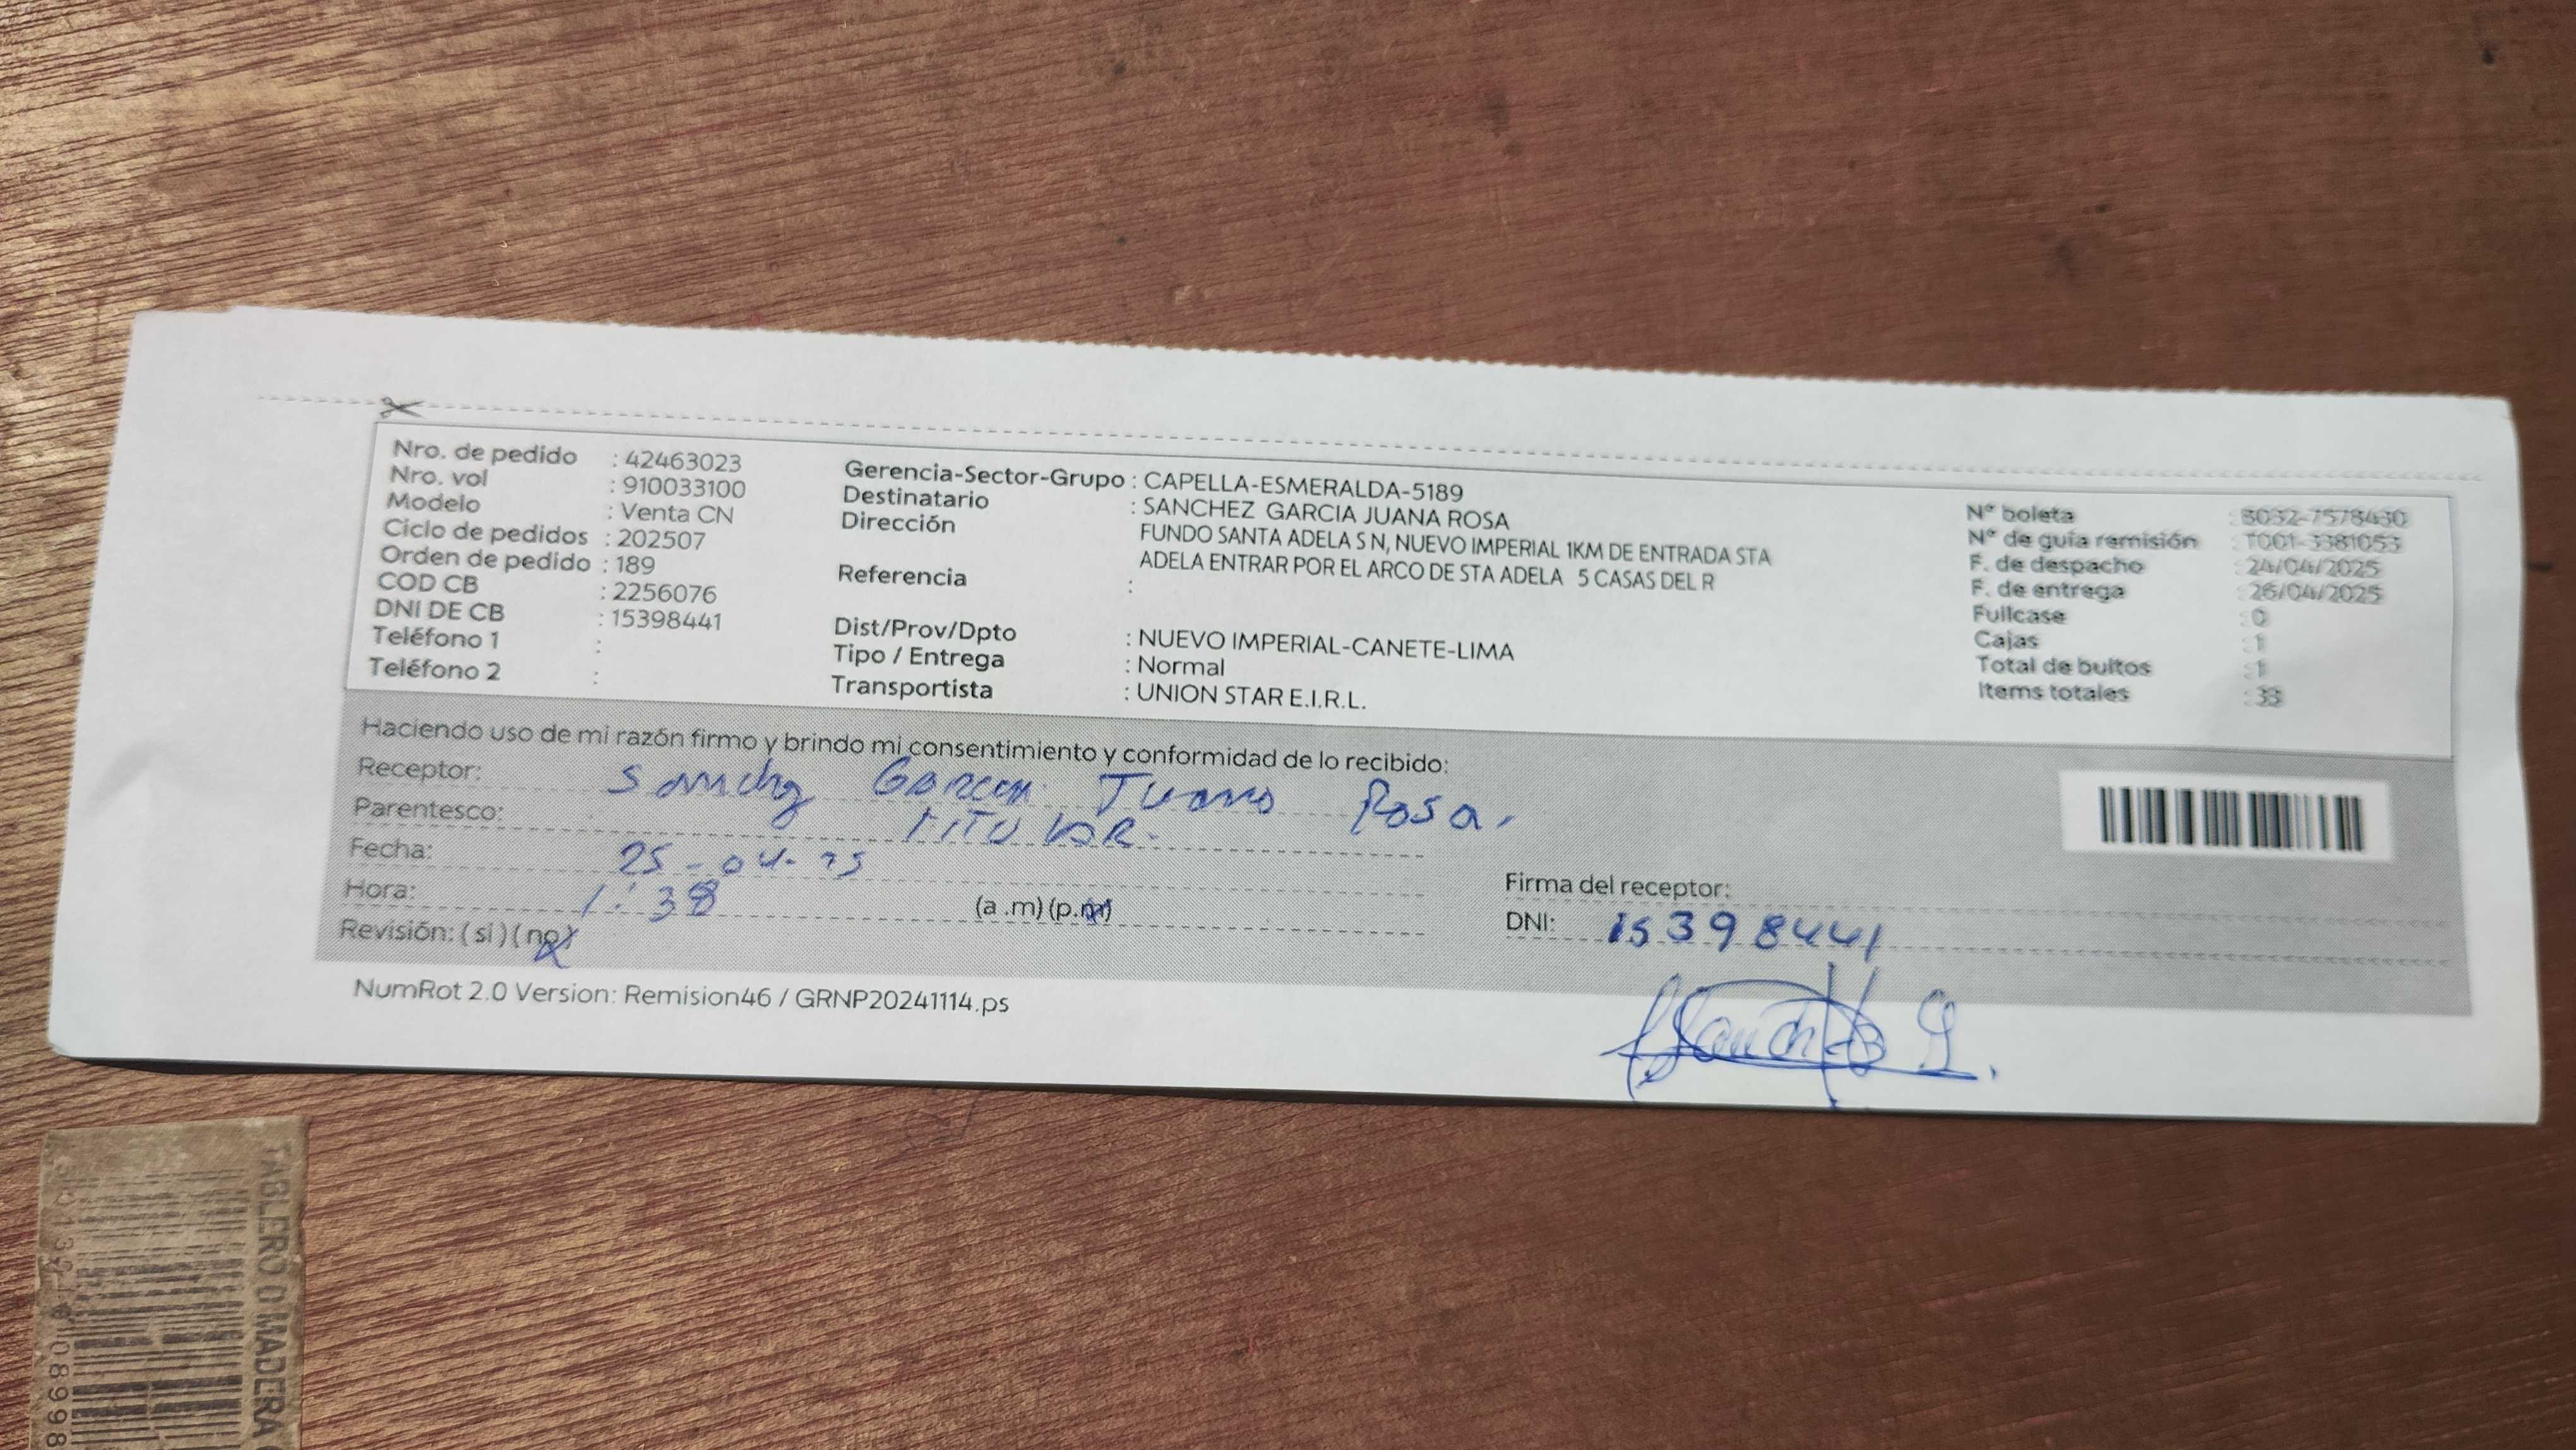 Nro. de pedido : 42463023
Nro. vol : 910033100
Modelo : Venta CN
Ciclo de pedidos : 202507
Orden de pedido : 189
COD CB : 2256076
DNI DE CB : 15398441
Teléfono 1 :
Teléfono 2 :
Gerencia-Sector-Grupo : CAPELLA-ESMERALDA-5189
Destinatario : SANCHEZ GARCIA JUANA ROSA
Dirección FUNDO SANTA ADELA S N, NUEVO IMPERIAL 1KM DE ENTRADA STA
ADELA ENTRAR POR EL ARCO DE STA ADELA 5 CASAS DEL R
Referencia :
Dist/Prov/Dpto : NUEVO IMPERIAL-CANETE-LIMA
Tipo / Entrega : Normal
Transportista : UNION STAR E.I.R.L.
N° boleta : B032-7578430
N° de guía remisión : T001-3381053
F. de despacho : 24/04/2025
F. de entrega : 26/04/2025
Fullcase : 0
Cajas : 1
Total de bultos : 1
Items totales : 33
Haciendo uso de mi razón firmo y brindo mi consentimiento y conformidad de lo recibido:
Receptor: Sanchez Garcia Juana Rosa.
Parentesco: TITULAR.
Fecha: 25-04-25
Hora: 1:38 (a .m) (p.m)
Revisión: ( si ) ( no )
Firma del receptor:
DNI: 15398441
NumRot 2.0 Version: Remision46 / GRNP20241114.ps
TABLERO D MADERA